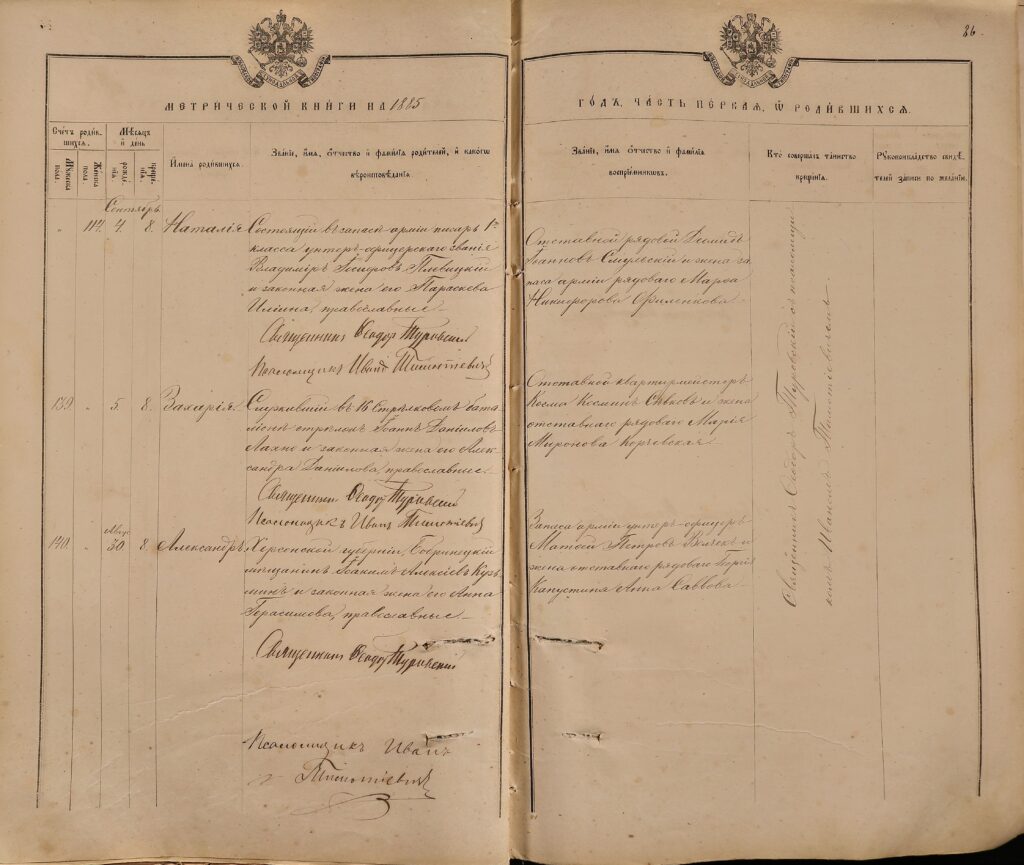 86.
МЕТРИЧЕСКОЙ КНИГИ НА 1885
ГОДЪ, ЧАСТЬ ПЕРВАЯ, Ѿ РОДИВШИХСЯ.
Счетъ родив-
шихся.
Мужеска
пола.
Женска
пола.
Мѣсяцъ
и день
рожде-
нія
креще-
нія.
Имена родившихся.
Званіе, имя, отчество и фамилія родителей, и какого
вѣроисповѣданія
Званіе, имя отчество и фамилія
воспріемниковъ.
Кто совершалъ таинство
крещенія.
Рукоприкладство свидѣ-
телей записи по желанію.
Сентябрь
" 114. 4. 8. Наталія
Состоящій въ запасѣ арміи писарь 1го
класса унтеръ-офицерскаго званія
Владиміръ Плевицкій
и законная жена его Параскева
Иліина, православные
Священникъ Ѳеодоръ Туровскій
Псаломщикъ Иванъ
Отставной рядовой
Іоанновъ Смульскій и жена за-
паса арміи рядоваго Марѳа
Никифорова Филенкова
139. " 5. 8. Захарія
Служившій въ 16 Стрѣлковомъ бата-
ліонѣ стрѣлокъ Іоаннъ Даніиловъ
Лахно и законная жена его Алек-
сандра Даніилова, православные
Священникъ Ѳеодоръ Туровскій
Псаломщикъ Иванъ
Отставной квартирмейстеръ
Косма Косминъ и жена
отставнаго рядоваго Марія
Миронова Корчевская
Авгус.
140. " 30 8. Александръ
Херсонской губерніи, Бобринецкій
мѣщанинъ Іоакимъ Алексіевъ Кузь-
минъ и законная жена его Анна
Герасимова, православные
Священникъ Ѳеодоръ Туровскій
Псаломщикъ Иванъ
Запаса арміи унтеръ-офицеръ
Матѳей Петровъ Волчекъ и
жена отставнаго рядоваго
Капустина Анна Саввова
Священникъ Ѳеодоръ Туровскій съ псаломщи-
комъ Иваномъ